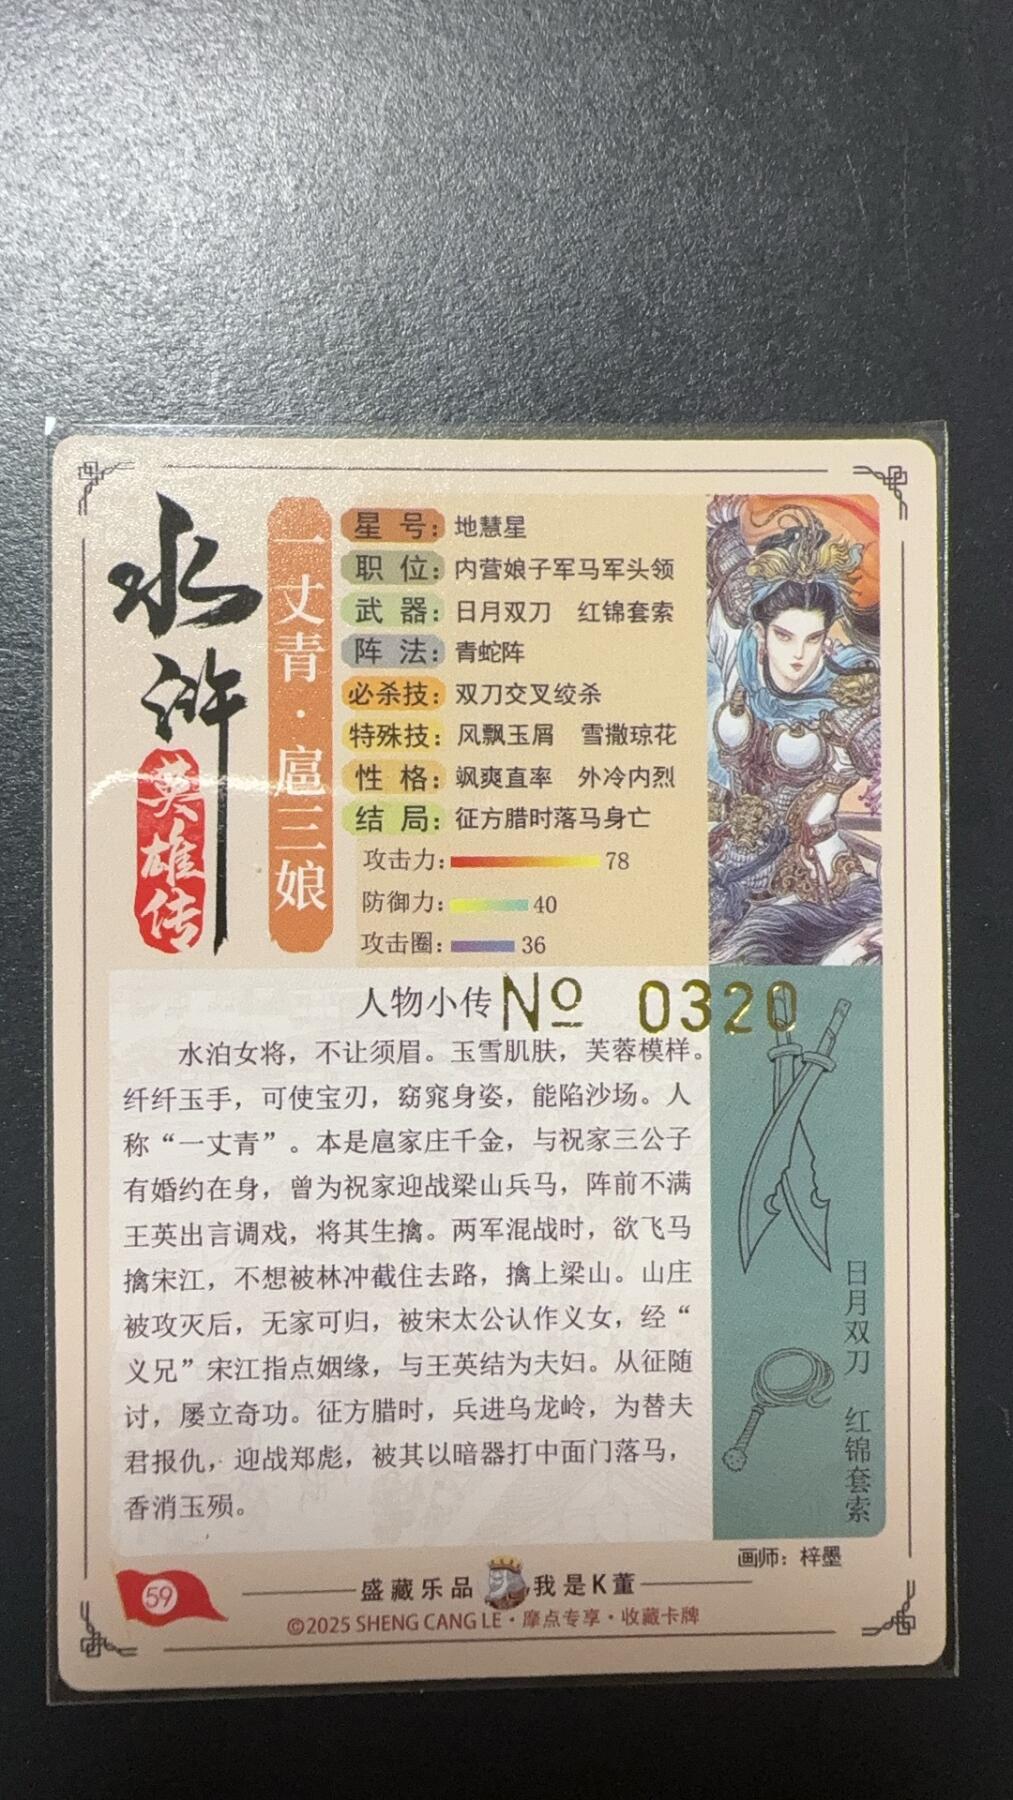 水浒
英雄传
一丈青·扈三娘
星号：地慧星
职位：内营娘子军马军头领
武器：日月双刀 红锦套索
阵法：青蛇阵
必杀技：双刀交叉绞杀
特殊技：风飘玉屑 雪撒琼花
性格：飒爽直率 外冷内烈
结局：征方腊时落马身亡
攻击力：78
防御力：40
攻击圈：36
人物小传
No 0320
水泊女将，不让须眉。玉雪肌肤，芙蓉模样。
纤纤玉手，可使宝刃，窈窕身姿，能陷沙场。人
称“一丈青”。本是扈家庄千金，与祝家三公子
有婚约在身，曾为祝家迎战梁山兵马，阵前不满
王英出言调戏，将其生擒。两军混战时，欲飞马
擒宋江，不想被林冲截住去路，擒上梁山。山庄
被攻灭后，无家可归，被宋太公认作义女，经“
义兄”宋江指点姻缘，与王英结为夫妇。从征随
讨，屡立奇功。征方腊时，兵进乌龙岭，为替夫
君报仇，迎战郑彪，被其以暗器打中面门落马，
香消玉殒。
日月双刀 红锦套索
画师：梓墨
59
盛藏乐品 我是K董
©2025 SHENG CANG LE·摩点专享·收藏卡牌